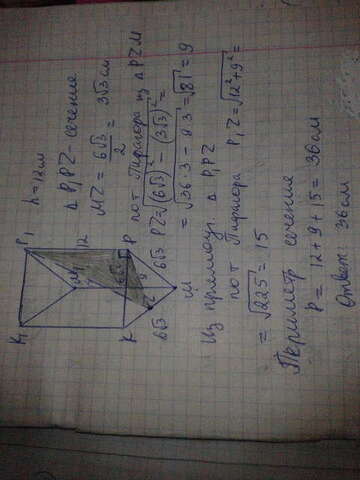 h = 12 см
△ P₁PZ - сечение
MZ = 6√3 / 2 = 3√3 см
по т Пифагора из △ PZM
PZ = √(6√3)² - (3√3)² =
= √36·3 - 9·3 = √81 = 9
Из прямоуг. △ P₁PZ
по т Пифагора P₁Z = √12² + 9² =
= √225 = 15
Периметр сечения
P = 12 + 9 + 15 = 36 см
Ответ: 36 см
P₁
12
P
M₁
6√3
9
6√3
Z
M
6√3
K₁
K